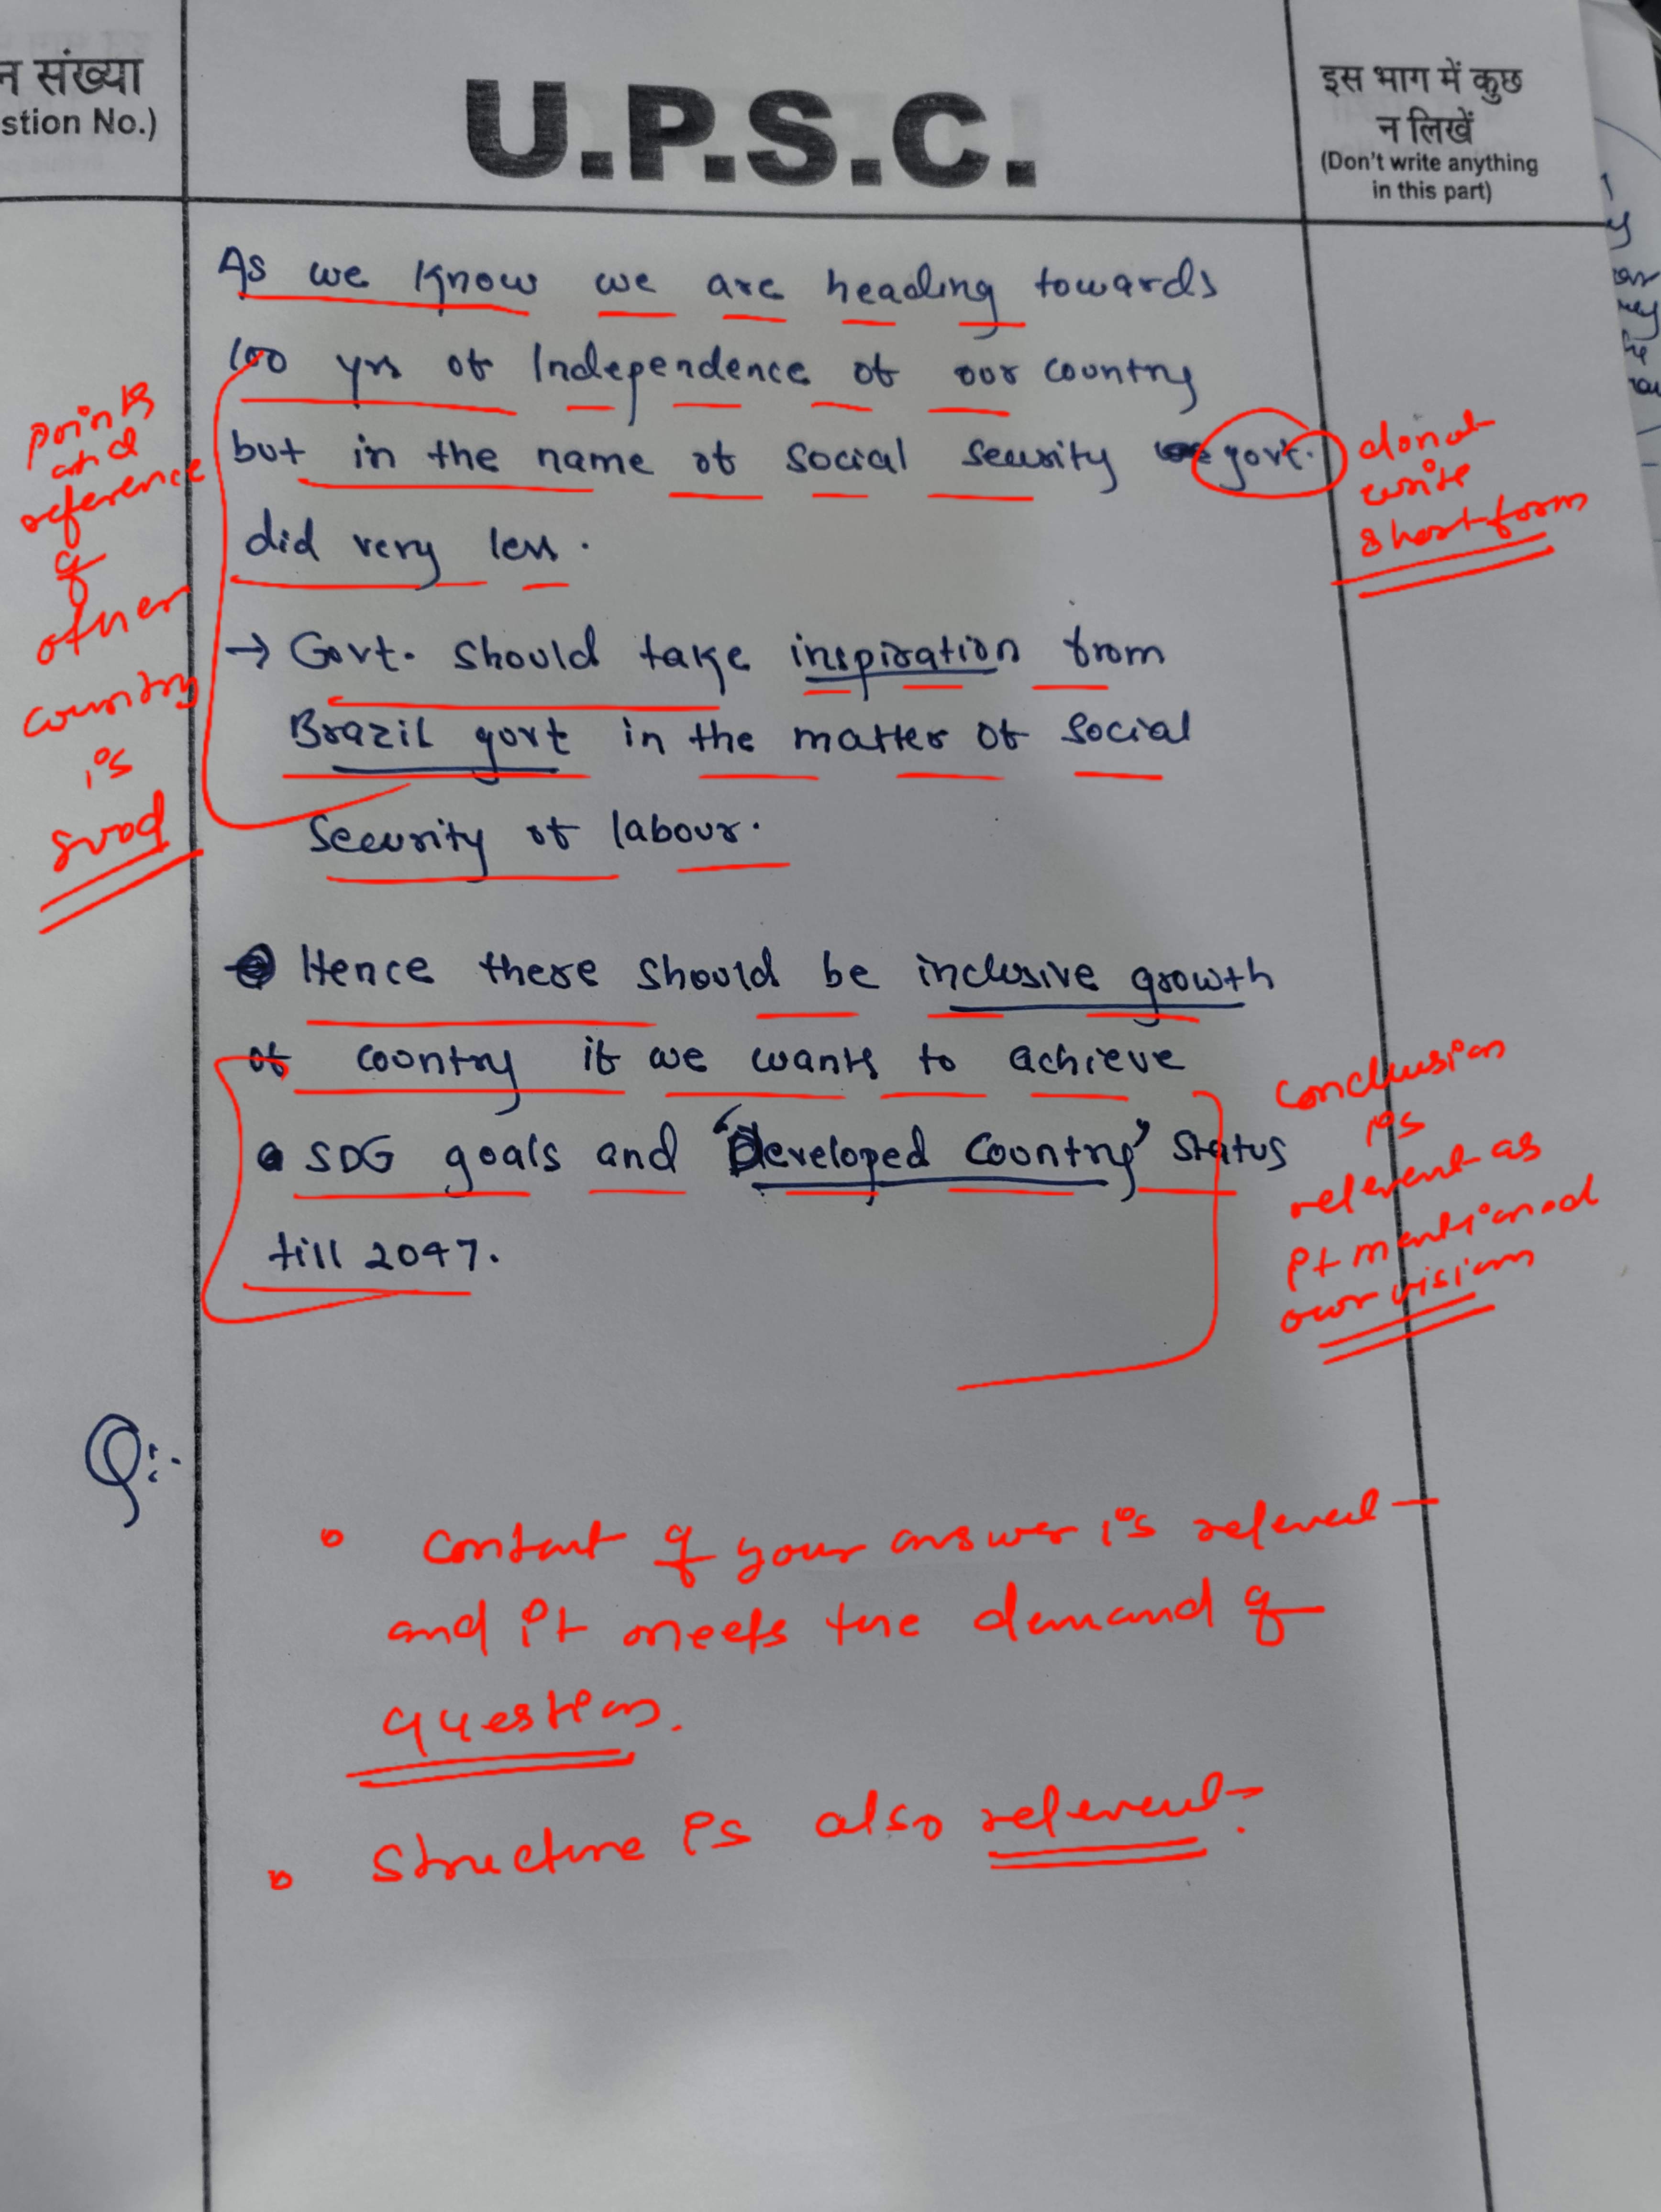 न संख्या
stion No.)
U.P.S.C.
इस भाग में कुछ
न लिखें
(Don't write anything
in this part)
As we know we are heading towards
100 yrs of Independence of our country
but in the name of social security govt.
did very less.
→ Govt. should take inspiration from
Brazil govt in the matter of social
security of labour.
Hence there should be inclusive growth
of country if we wants to achieve
SDG goals and 'Developed Country' status
till 2047.
points
and
reference
of
other
country
is
good
donot
write
short form
conclusion
is
relevent as
it mentioned
our vision
Q:-
• content of your answer is relevent
and it meets the demand of
question.
• structure is also relevent.